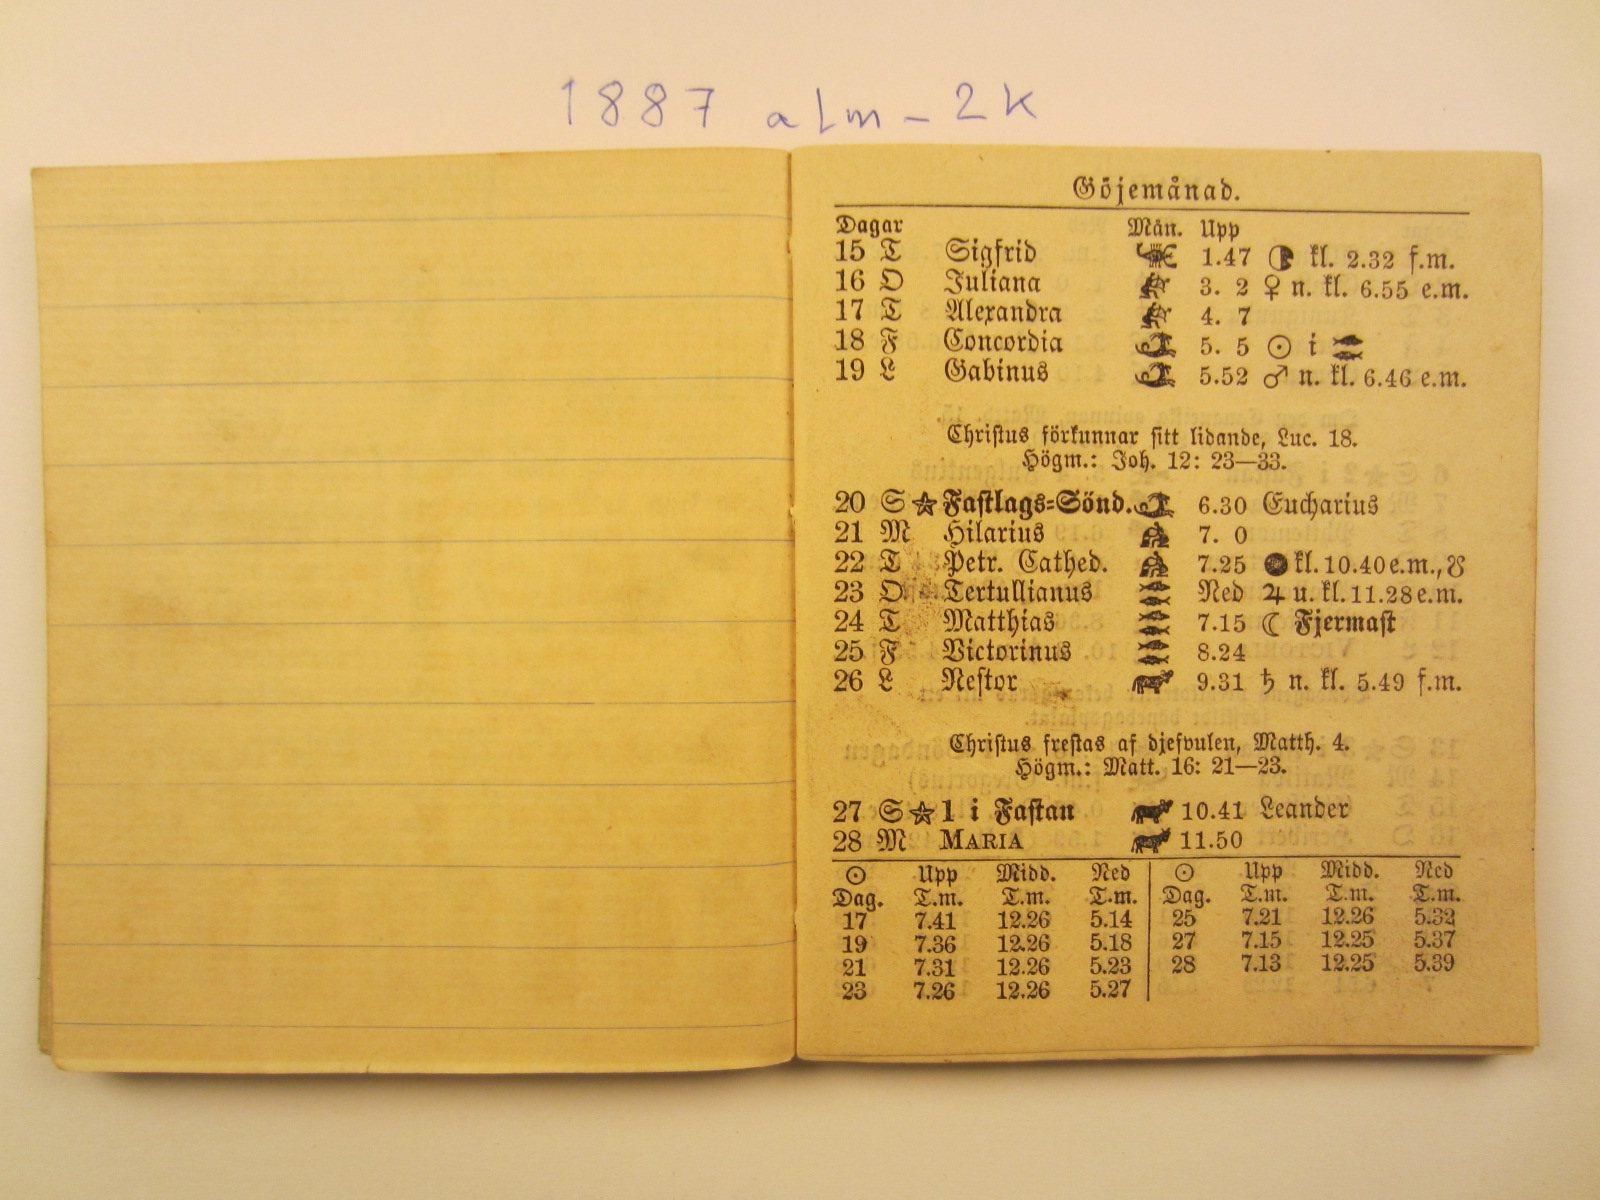 1887 alm - 2k
Göjemånad.
Dagar Mån. Upp
15 T Sigfrid ♏ 1.47 ◑ kl. 2.32 f.m.
16 O Juliana ♐ 3. 2 ♀ n. kl. 6.55 e.m.
17 T Alexandra ♐ 4. 7
18 F Concordia ♑ 5. 5 ☉ i ♓
19 L Gabinus ♑ 5.52 ♂ n. kl. 6.46 e.m.
Christus förkunnar sitt lidande, Luc. 18.
Högm.: Joh. 12: 23—33.
20 S ☆ Fastlags-Sönd. ♑ 6.30 Eucharius
21 M Hilarius ♒ 7. 0
22 T Petr. Cathed. ♒ 7.25 ● kl. 10.40 e.m., ☋
23 O Tertullianus ♓ Ned ♃ u. kl. 11.28 e.m.
24 T Matthias ♓ 7.15 ☾ Fjermast
25 F Victorinus ♓ 8.24
26 L Nestor ♈ 9.31 ♄ n. kl. 5.49 f.m.
Christus frestas af djefvulen, Matth. 4.
Högm.: Matt. 16: 21—23.
27 S ☆ 1 i Fastan ♉ 10.41 Leander
28 M MARIA ♉ 11.50
☉ Upp Midd. Ned ☉ Upp Midd. Ned
Dag. T.m. T.m. T.m. Dag. T.m. T.m. T.m.
17 7.41 12.26 5.14 25 7.21 12.26 5.32
19 7.36 12.26 5.18 27 7.15 12.25 5.37
21 7.31 12.26 5.23 28 7.13 12.25 5.39
23 7.26 12.26 5.27